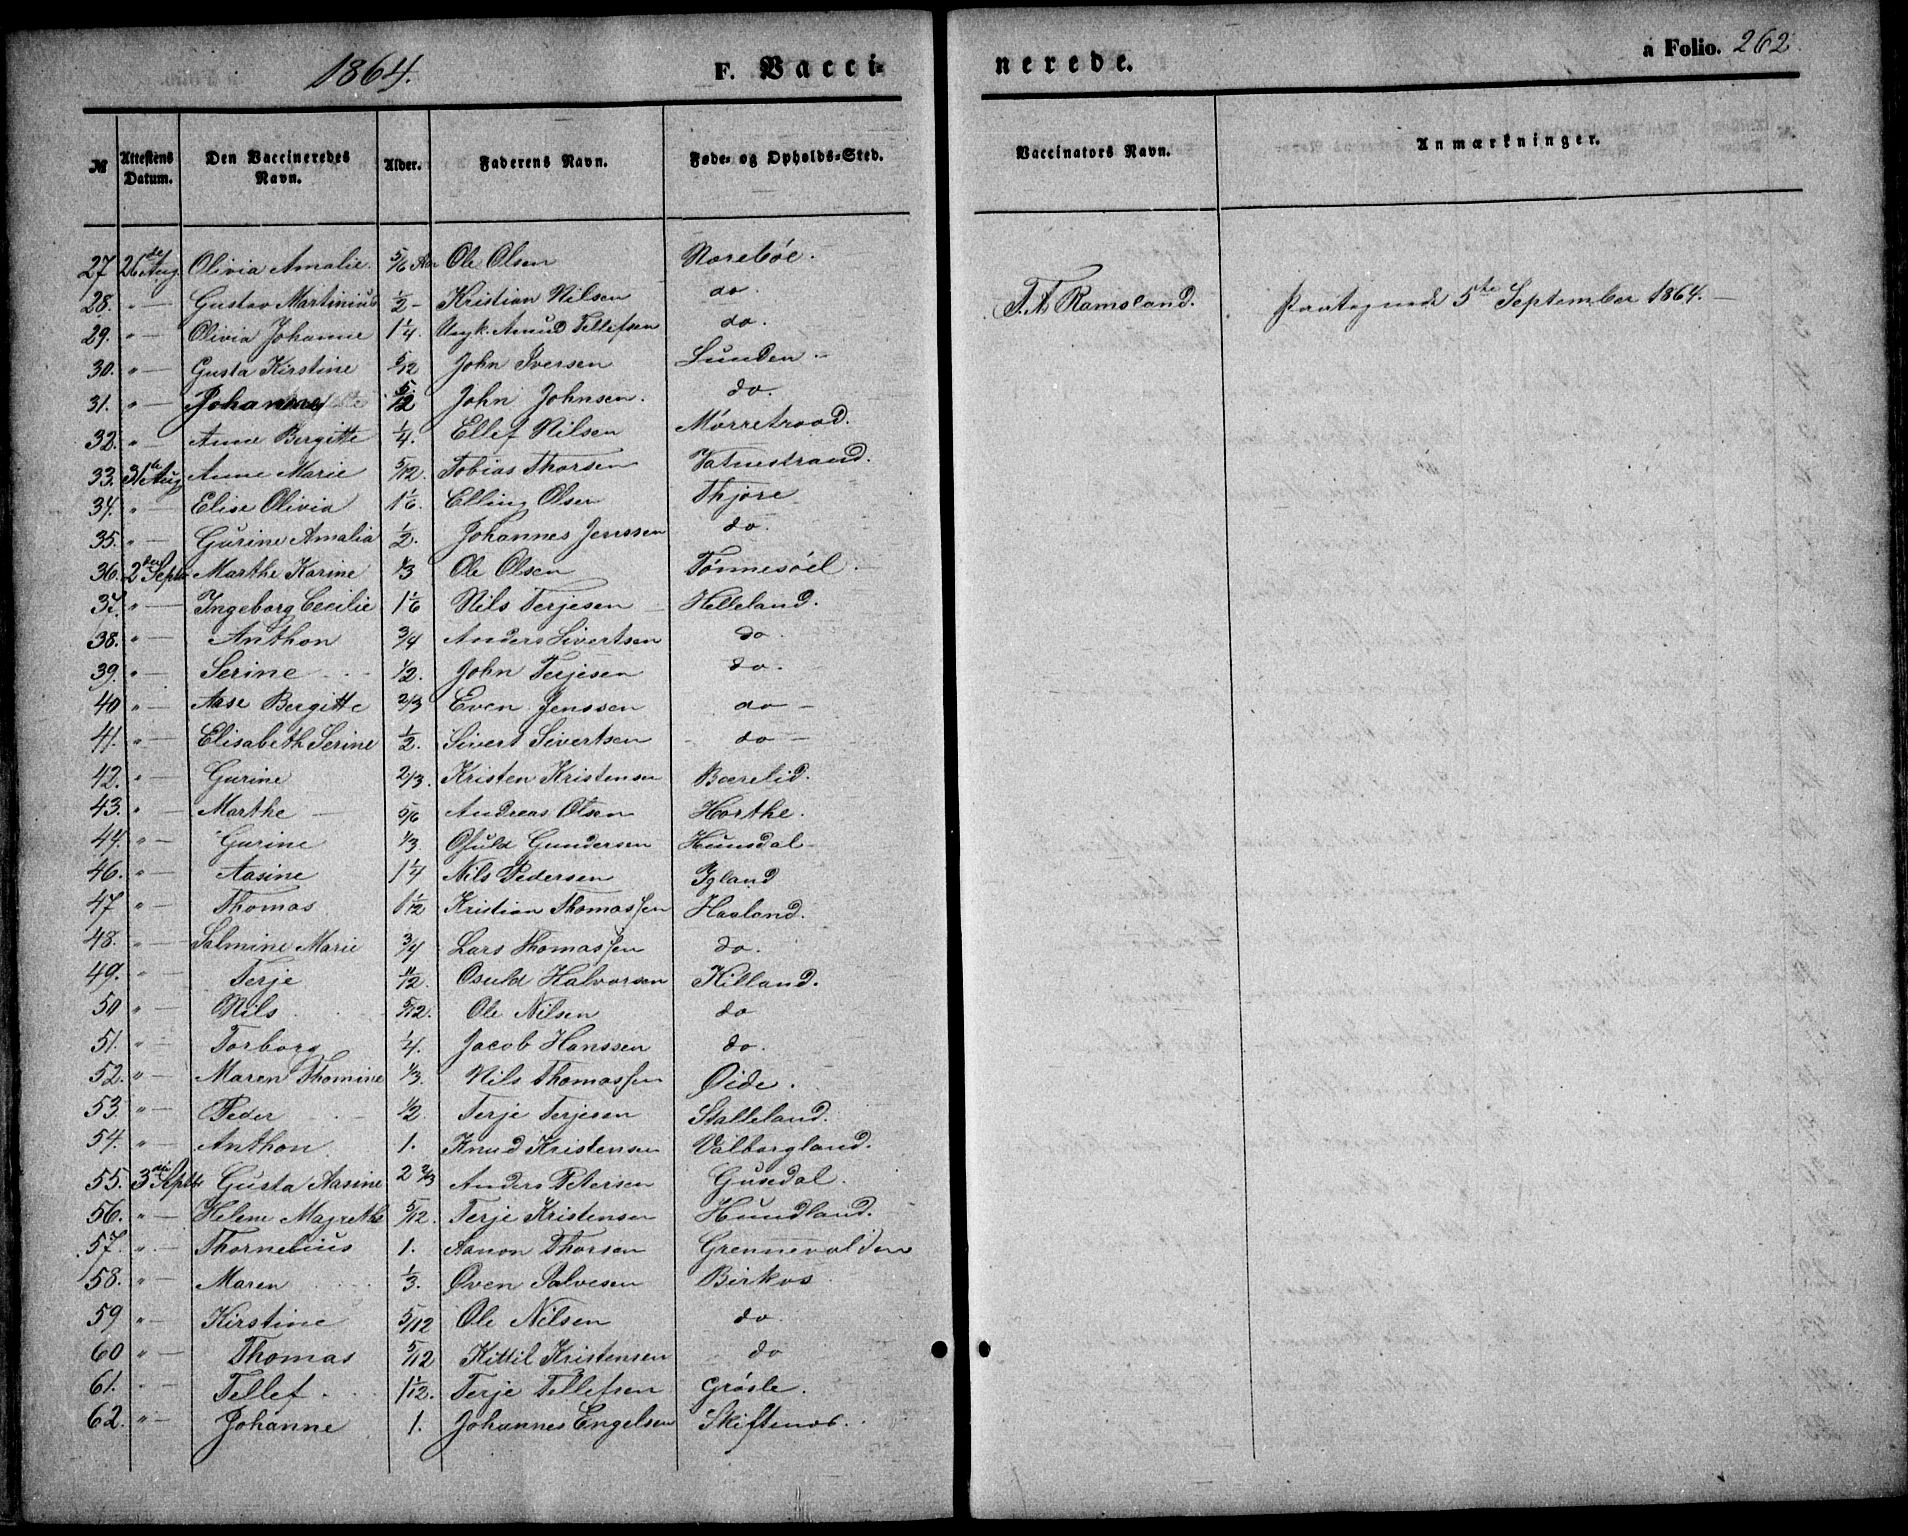 1864. F. Vaccinerede. a Folio. 262.
№ Attestens Datum. Den Vaccineredes Navn. Alder. Faderens Navn. Føde- og Opholds-Sted. Vaccinators Navn. Anmærkninger.
27 26de Aug. Olivia Amalie. 5/6 Aar Ole Olsen Norebøe.
28. " — Gustav Martinius 1/2 - Kristian Nilsen do. T. A. Ramsland. Foretagnede 5te September 1864. —
29. " — Olivia Johanne 1 1/4. Ungk. Amund Tellefsen do.
30. " — Gusta Kirstine 5/12 John Iversen Lunden -
31. " — Johanne 5/12 John Johnsen. do.
32. " Anne Bergitte 1/4. Ellef Nilsen Mørretraad.
33. 31te Aug Anne Marie 5/12. Tobias Thorsen Vatnestrand.
34. " — Elise Olivia 1 1/6. Elling Olsen Thjøre
35. " — Gurine Amalia 1/2. Johannes Jenssen do.
36. 2den Septb Marthe Karine 1/3 Ole Olsen Tønnesøel
37. " — Ingeborg Cecilie 1 1/6 Nils Terjesen Helleland.
38. " — Anthon 3/4 Anders Sivertsen do.
39. " — Serine 1/2. John Terjesen do.
40 " — Aase Bergitte 2/3 Even Jenssen do —
41. " — Elisabeth Serine 1/2. Sivert Sivertsen do —
42. " — Gurine 2/3. Kristen Kristensen Bærelid.
43. " — Marthe — 5/6 Andreas Olsen Horthe.
44. " — Gurine 1/3. Osuld Gundersen Hunsdal
46. " — Aasine 1 1/4 Nils Pedersen Igland
47 " — Thomas 1 1/12 Kristian Thomassen Haaland.
48. " — Salmine Marie 3/4 Lars Thomassen do.
49. " — Terje 11/12. Osuld Halvorsen Killand.
50 " — Nils 5/12. Ole Nilsen do
51. " — Torborg 1/4. Jacob Hanssen do.
52. " — Maren Thomine 1/3. Nils Thomassen Øide.
53. " — Peder 1/2 Terje Terjesen Stalleland.
54. " — Anthon 1. Knud Kristensen Valborgland.
55. 3die Septb Gusta Aasine 2 2/3 Anders Petersen Gusedal.
56. " — Helene Magrethe 5/12. Terje Kristensen Hundland.
57. " — Thornelius 1. Aanon Thorsen Grennevolden
58. " — Maren 1/3. Even Salvesen Birkos
59 " — Kirstine 5/12 Ole Nilsen do.
60 " — Thomas 5/12 Kittil Kristensen do
61. " — Tellef. 1 1/12. Terje Tellefsen Grøsle.
62. " — Johanne 1. Johannes Engelsen Skiftenes.